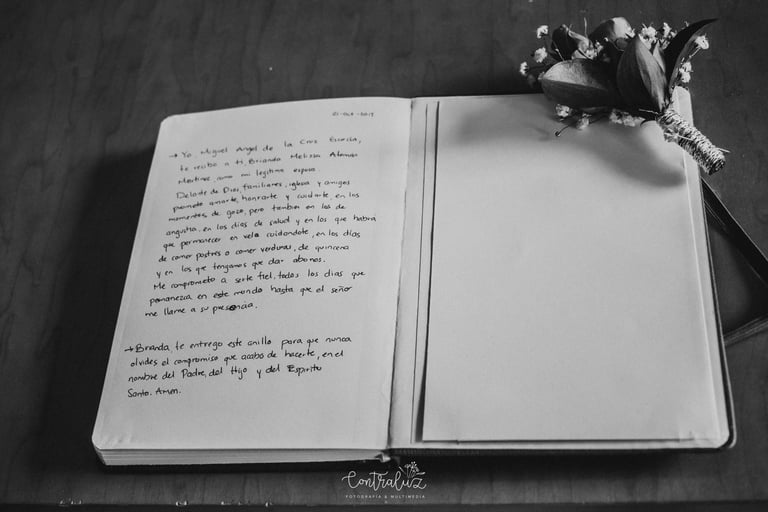 21-Oct-2017
→ Yo, Miguel Angel de la Cruz Escorcia,
te recibo a ti Brianda Melissa
Martinez, como mi legitima esposa.
Delante de Dios, familiares, iglesia y amigos
prometo amarte, honrarte y cuidarte, en los
momentos de gozo, pero tambien en los de
angustia, en los días de salud y en los que habrá
que permanecer en vela cuidandote, en los días
de comer postres o comer verduras, de quincena
y en los que tengamos que dar abonos.
Me comprometo a serte fiel, todos los días que
permanezca en este mundo hasta que el señor
me llame a su presencia.
→ Brianda, te entrego este anillo para que nunca
olvides el compromiso que acabo de hacerte, en el
nombre del Padre, del Hijo y del Espíritu
Santo. Amen.
Contraluz
FOTOGRAFÍA & MULTIMEDIA